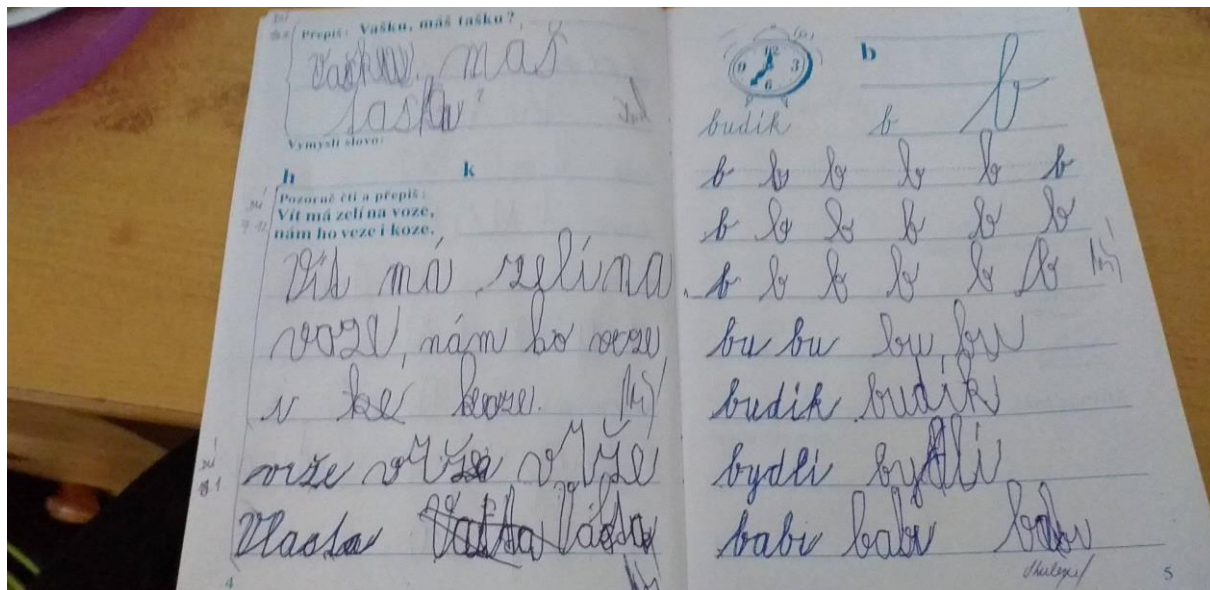 Přepiš: Vašku, máš tašku?
Vašku, máš
tašku?
Vymysli slovo:
h k
Pozorně čti a přepiš:
Vít má zelí na voze,
nám ho veze i koze.
Vít má zelína
voze, nám ho veze
i ke koze.
věže v
Vlasta
4
12
9 3
6
b
budík b b
b b b b b b
b b b b b b
b b b b b b
bu bu bu, bu
budík budík
bydlí bydlí
babi babi babi
5